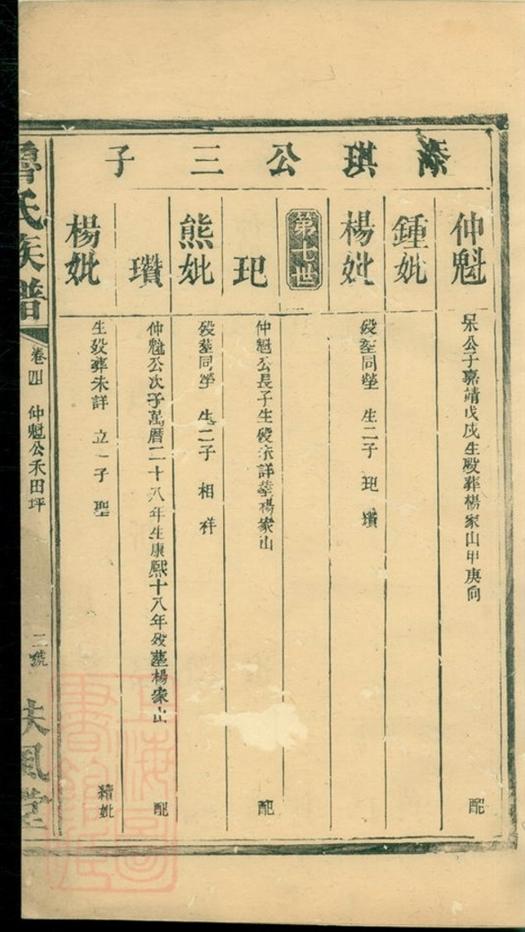 添琪公三子
仲魁
呆公子嘉靖戊戌生歿葬楊家山甲庚向
配
鍾妣
楊妣
歿塟同塋 生二子 玘 瓚
第七世
玘
仲魁公長子生歿未詳塟楊家山
配
熊妣
歿塟同塋 生二子 相 祥
瓚
仲魁公次子萬曆二十八年生康熙十八年歿塟楊家山
配
楊妣
生歿葬未詳 立一子 聖
繼妣
魯氏族譜
卷四 仲魁公禾田坪
二號
扶風堂